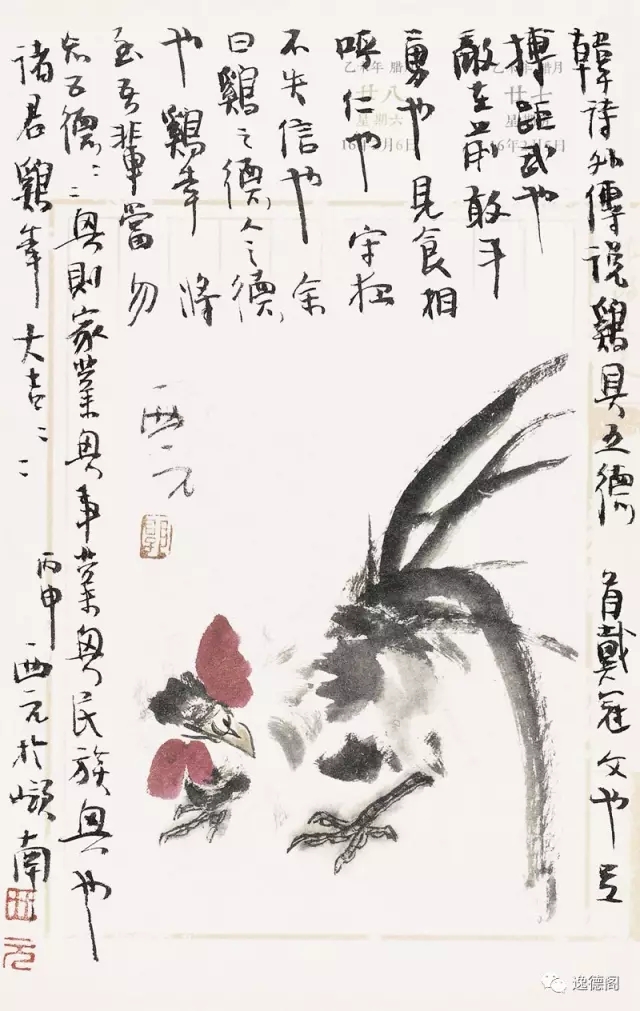 韓詩外傳说鷄具五德 首戴冠文也足
搏距武也
敵在前敢斗
勇也見食相
仁也 守夜
不失信也 余
曰鷄之德人之德
也 鷄年 将
至吾輩當勿
忘五德〻〻興則家業興事業興民族興也
諸君鷄年大吉〻〻 丙申 西元於嶺南
西元
乙未年 腊月
廿八
星期六
16年2月6日
腊月
星期
16年2月5日
逸德阁